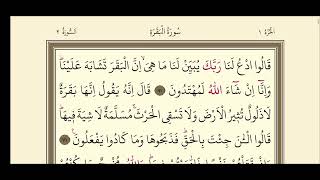 الجزء ١
سورة البقرة
السورة ٢
قَالُوا ادْعُ لَنَا رَبَّكَ يُبَيِّنْ لَنَا مَا هِيَ إِنَّ الْبَقَرَ تَشَابَهَ عَلَيْنَا
وَإِنَّا إِنْ شَاءَ اللَّهُ لَمُهْتَدُونَ ٧٠ قَالَ إِنَّهُ يَقُولُ إِنَّهَا بَقَرَةٌ
لَا ذَلُولٌ تُثِيرُ الْأَرْضَ وَلَا تَسْقِي الْحَرْثَ مُسَلَّمَةٌ لَا شِيَةَ فِيهَا
قَالُوا الْآنَ جِئْتَ بِالْحَقِّ فَذَبَحُوهَا وَمَا كَادُوا يَفْعَلُونَ ٧١